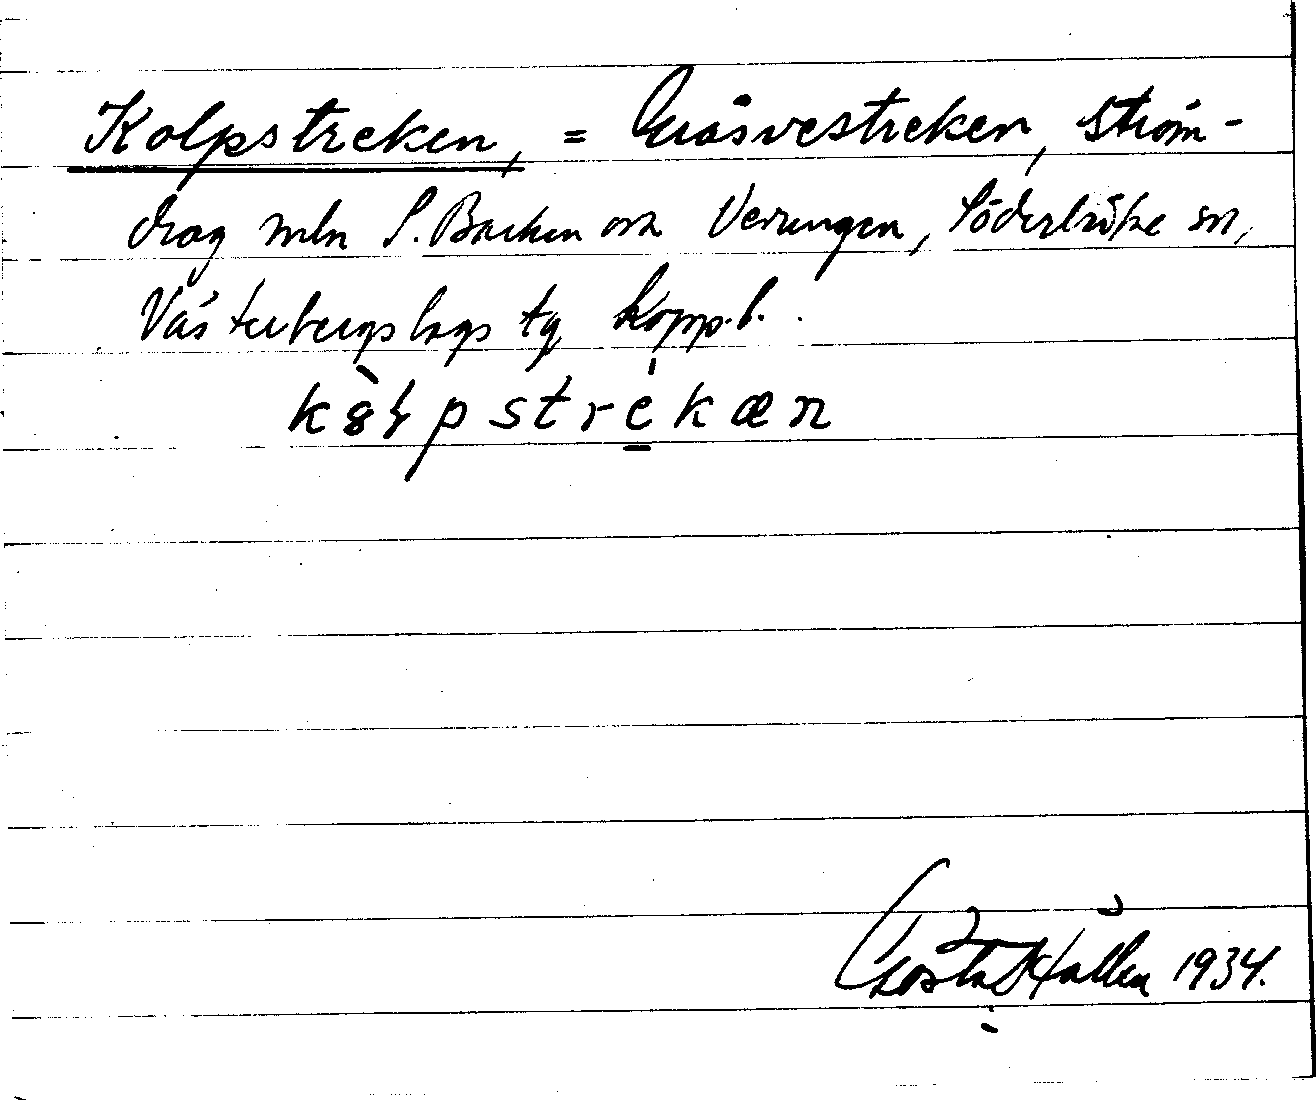 Kolpstreken, = Gråsvestreken, Ström-
drag mln S. Barken och Verungen, Söderbärke sn,
Västerbergslags tg Kopp. l.
kȣ̀ɽpstrekæn
Gösta Hallén 1934.